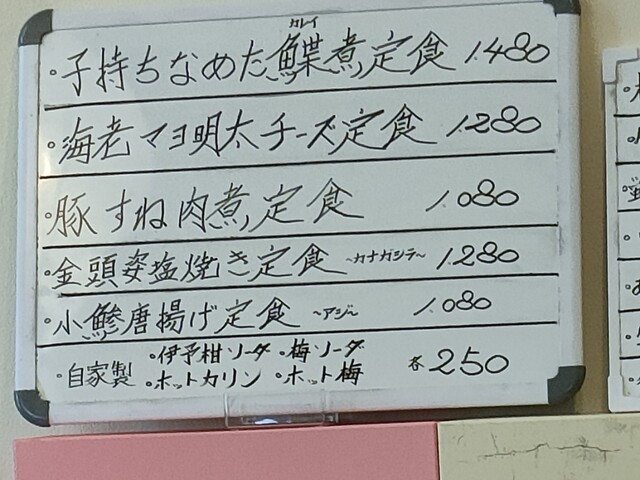 カレイ
・子持ちなめた鰈煮定食 1.480
・海老マヨ明太チーズ定食 1.280
・豚すね肉煮定食 1.080
・金頭姿塩焼き定食 ~カナガシラ~ 1.280
・小鯵唐揚げ定食 ~アジ~ 1.080
・自家製 ・伊予柑ソーダ ・梅ソーダ 各250
・ホットカリン ・ホット梅